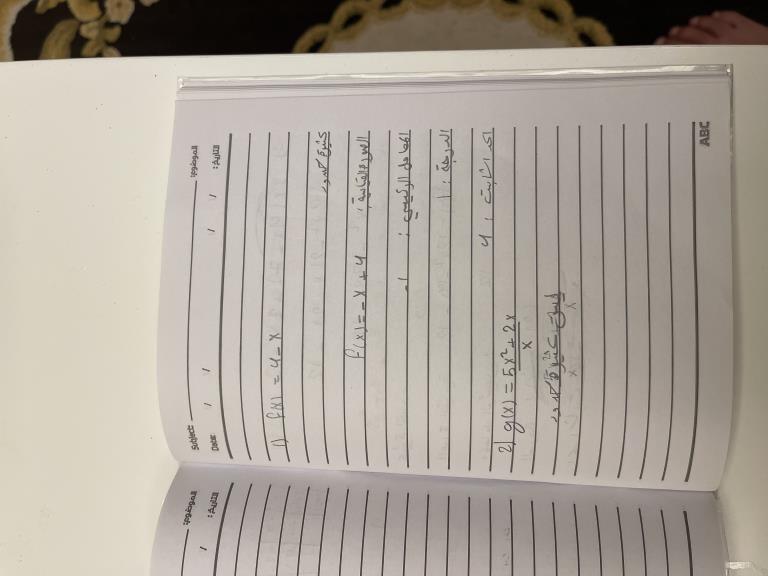 Subject: الموضوع:
Date: / / / / التاريخ:
1) f(x) = 4 - x
كثيرة حدود
الصورة القياسية: f(x) = -x + 4
المعامل الرئيسي: -1
الدرجة: 1
الحد الثابت: 4
2) g(x) = 5x² + 2x / x
ليست كثيرة حدود
ABC
الموضوع:
التاريخ: /